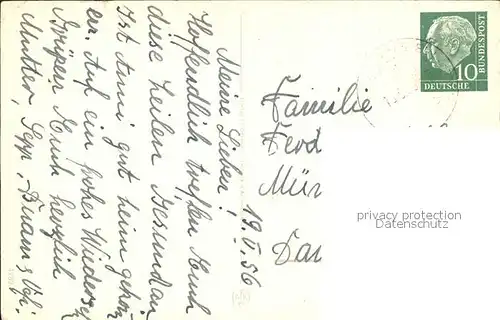 19.V.56
Meine Lieben!
Hoffendlich treffen Euch
diese Zeilen Gesund an
Ist Anni gut heim gekom
en. Auf ein frohes Wiederseh
Grüßen Euch herzlich
Mutter, Sepp,
Familie
Ferd
Mün
Dar
10
DEUTSCHE
BUNDESPOST
privacy protection
www.ansichtskarten-